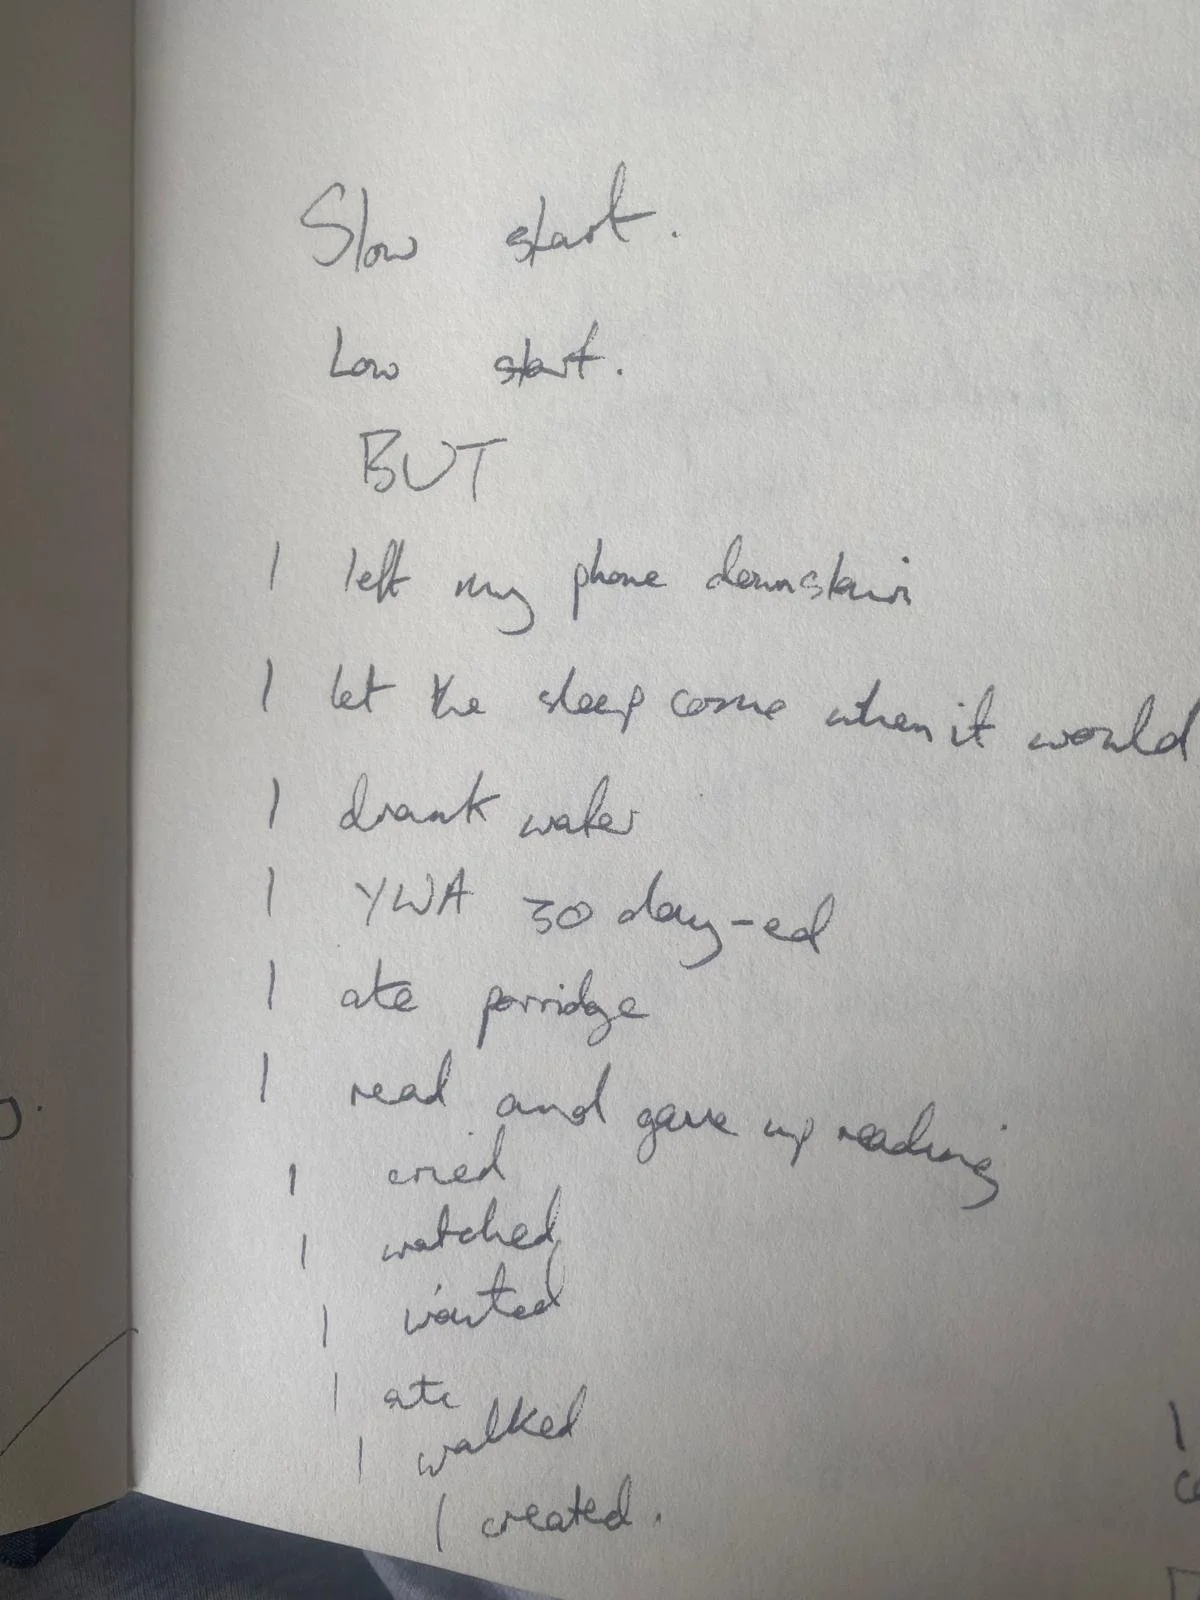 Slow start.
Low start.
BUT
I left my phone downstairs
I let the sleep come when it would
I drank water
I YWA 30 day-ed
I ate porridge
I read and gave up reading
I cried
I watched
I waited
I ate
I walked
I created.